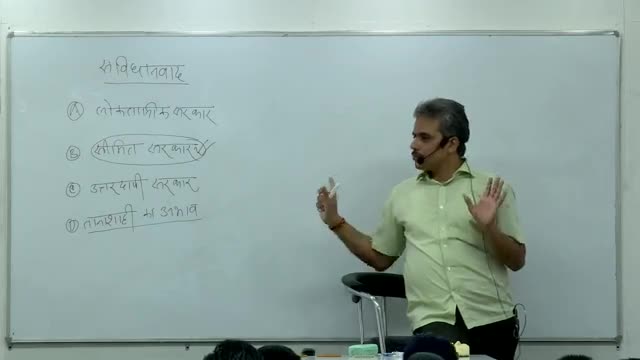 संविधानवाद
(A) लोकतांत्रिक सरकार
(B) सीमित सरकार ✓
(C) उत्तरदायी सरकार
(D) तानाशाही का अभाव